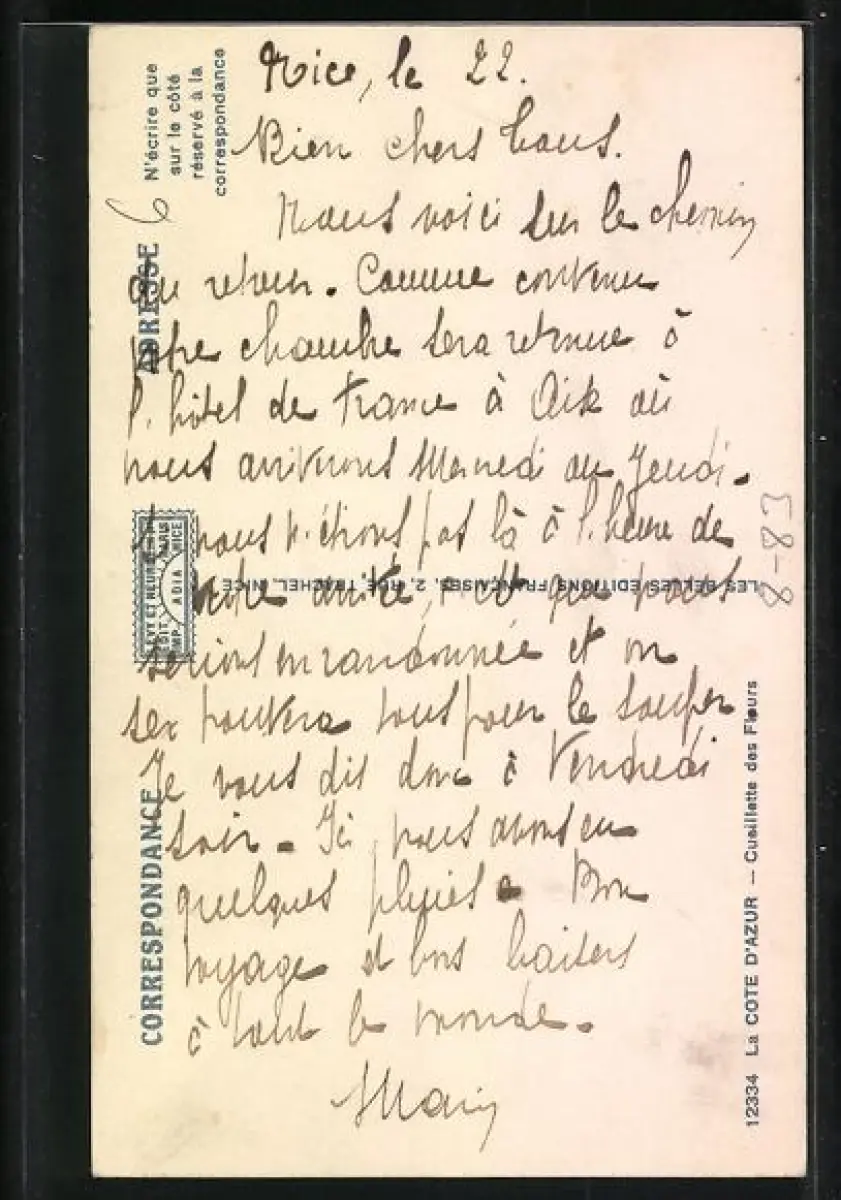 Nice, le 22.
Bien chers tous.
Nous voici sur le chemin
du retour. Comme convenu
votre chambre sera retenue à
l'hôtel de France à Aix où
nous arriverons Mercredi ou Jeudi.
Si nous n'étions pas là à l'heure de
votre arrivée, c'est que nous
serions en randonnée et on
se trouvera tous pour le souper
Je vous dis donc à Vendredi
soir. Ici, nous avons eu
quelques pluies. Bon
voyage et bons baisers
à tout le monde.
N'écrire que
sur le côté
réservé à la
correspondance
ADRESSE
6
CORRESPONDANCE
LEVY ET NEURDEIN
PARIS
NICE
ADIA
EDIT.
IMP.
LES BELLES EDITIONS FRANÇAISES, 2, RUE TRACHEL, NICE
8-83
12334 La COTE D'AZUR — Cueillette des Fleurs